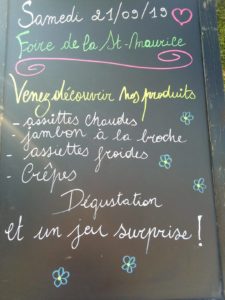 Samedi 21/09/19
Foire de la St-Maurice
Venez découvrir nos produits
- assiettes chaudes
jambon à la broche
- assiettes froides
- Crêpes
Dégustation
et un jeu surprise !